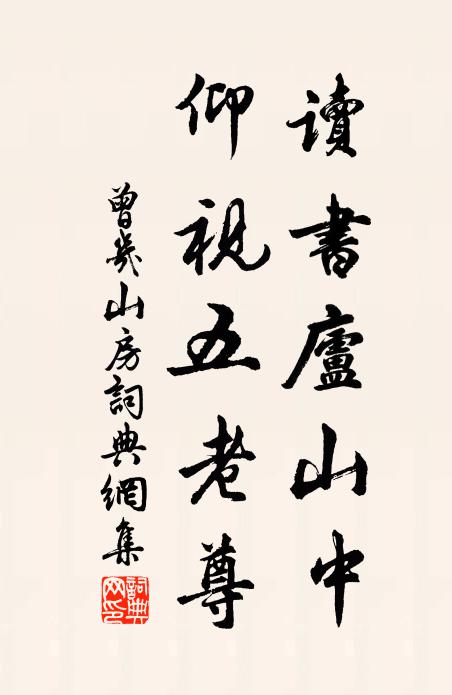 讀書廬山中
仰視五老尊
曾幾山房詞典網集
詞典網印